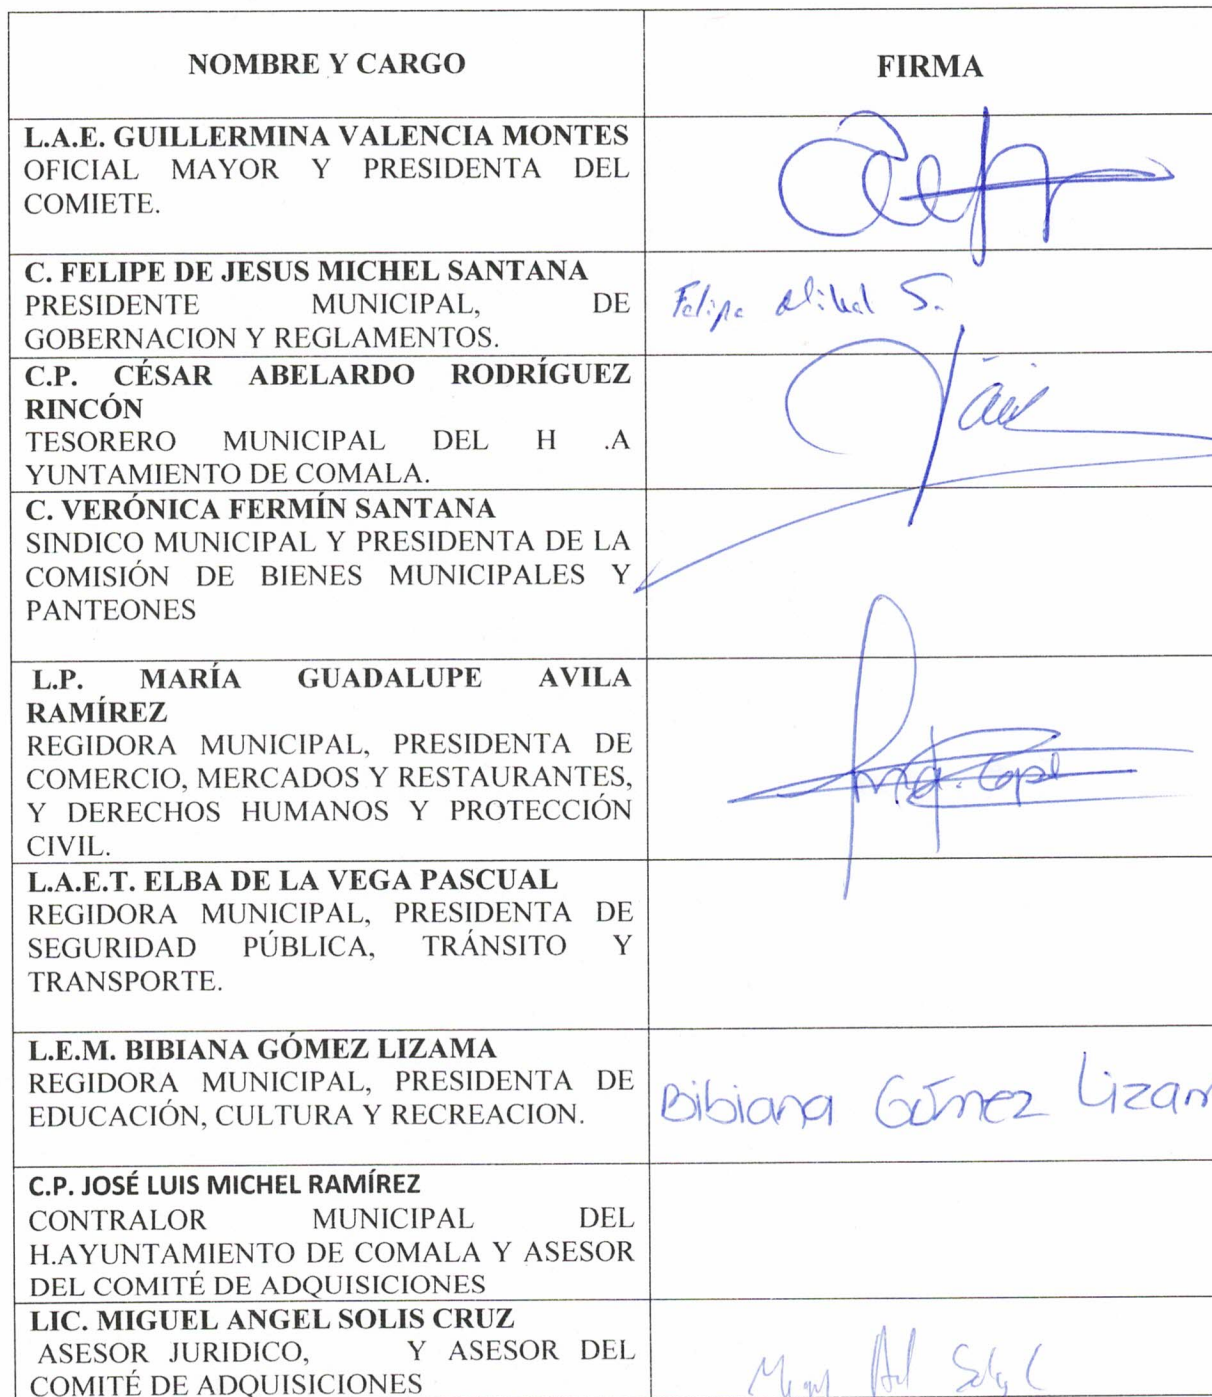 NOMBRE Y CARGO FIRMA
L.A.E. GUILLERMINA VALENCIA MONTES
OFICIAL MAYOR Y PRESIDENTA DEL
COMIETE.
C. FELIPE DE JESUS MICHEL SANTANA
PRESIDENTE MUNICIPAL, DE
GOBERNACION Y REGLAMENTOS.
Felipe Michel S.
C.P. CÉSAR ABELARDO RODRÍGUEZ
RINCÓN
TESORERO MUNICIPAL DEL H .A
YUNTAMIENTO DE COMALA.
C. VERÓNICA FERMÍN SANTANA
SINDICO MUNICIPAL Y PRESIDENTA DE LA
COMISIÓN DE BIENES MUNICIPALES Y
PANTEONES
L.P. MARÍA GUADALUPE AVILA
RAMÍREZ
REGIDORA MUNICIPAL, PRESIDENTA DE
COMERCIO, MERCADOS Y RESTAURANTES,
Y DERECHOS HUMANOS Y PROTECCIÓN
CIVIL.
L.A.E.T. ELBA DE LA VEGA PASCUAL
REGIDORA MUNICIPAL, PRESIDENTA DE
SEGURIDAD PÚBLICA, TRÁNSITO Y
TRANSPORTE.
L.E.M. BIBIANA GÓMEZ LIZAMA
REGIDORA MUNICIPAL, PRESIDENTA DE
EDUCACIÓN, CULTURA Y RECREACION.
Bibiana Gómez Lizam
C.P. JOSÉ LUIS MICHEL RAMÍREZ
CONTRALOR MUNICIPAL DEL
H.AYUNTAMIENTO DE COMALA Y ASESOR
DEL COMITÉ DE ADQUISICIONES
LIC. MIGUEL ANGEL SOLIS CRUZ
ASESOR JURIDICO, Y ASESOR DEL
COMITÉ DE ADQUISICIONES